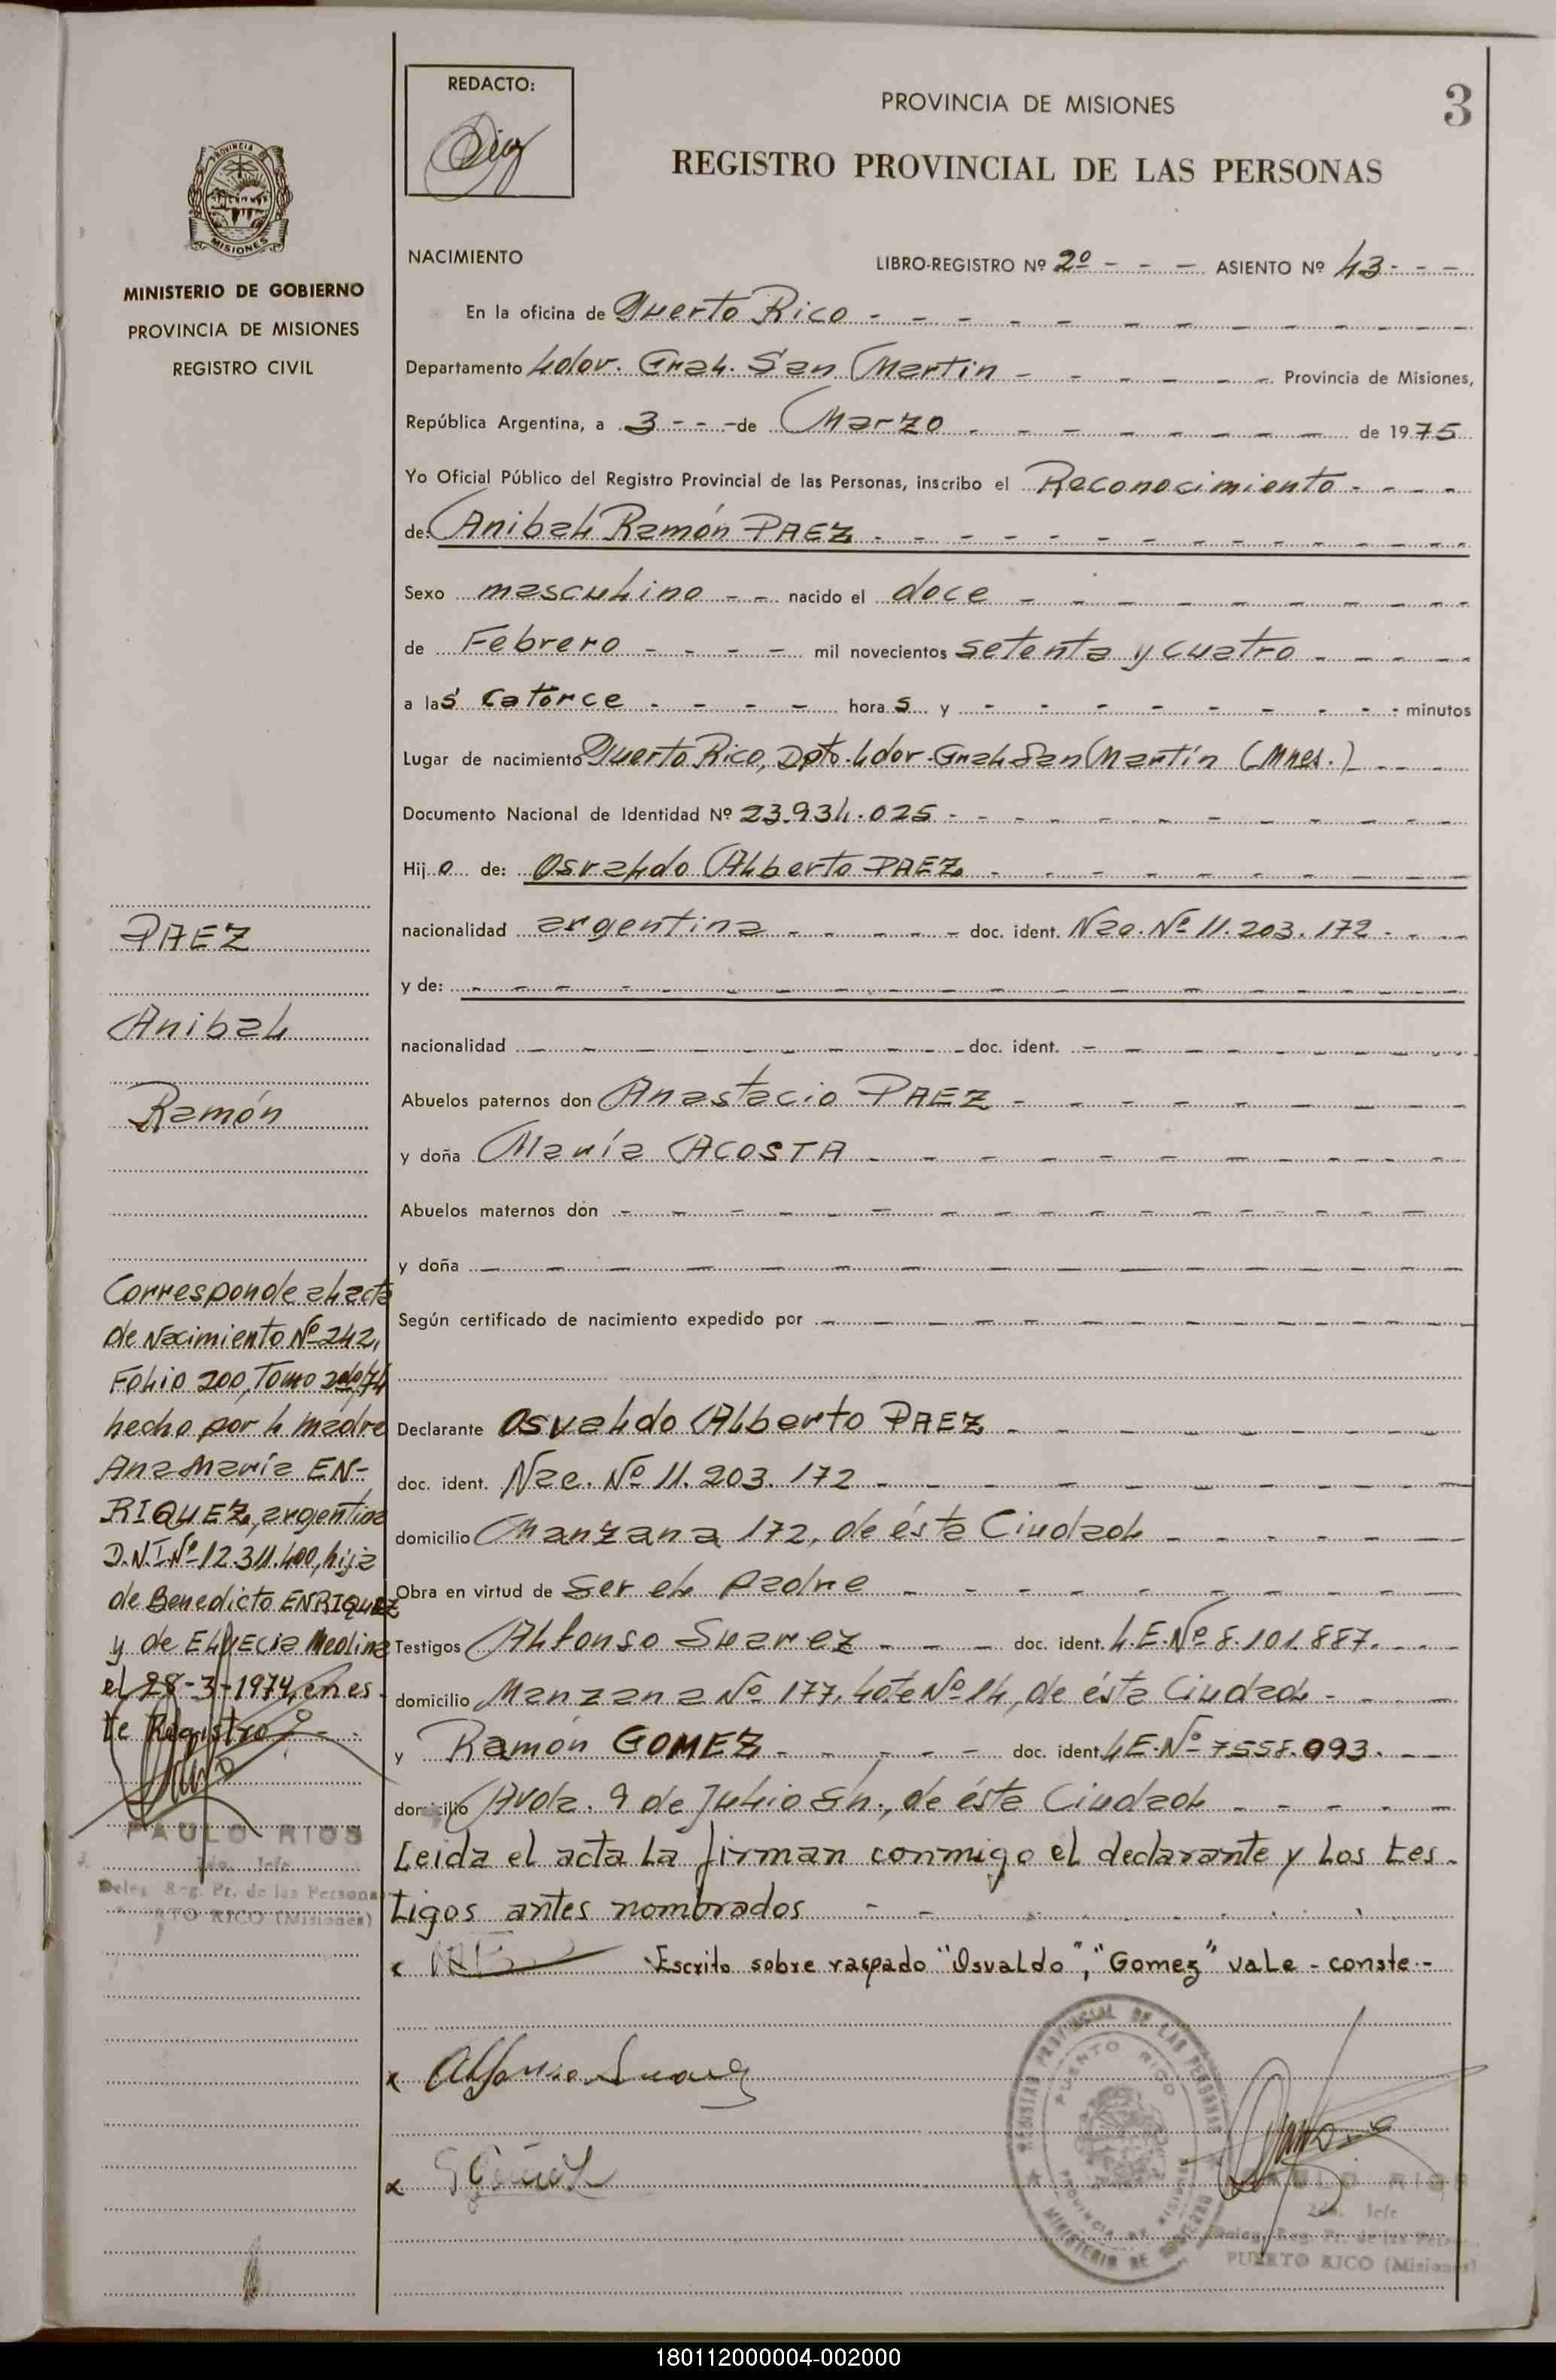 REDACTO:
PROVINCIA DE MISIONES
3
REGISTRO PROVINCIAL DE LAS PERSONAS
PROVINCIA DE
MISIONES
MINISTERIO DE GOBIERNO
PROVINCIA DE MISIONES
REGISTRO CIVIL
NACIMIENTO
LIBRO-REGISTRO Nº 2º - - - ASIENTO Nº 43 - - -
En la oficina de Puerto Rico
Departamento Ldor. Gral. San Martin Provincia de Misiones,
República Argentina, a 3 - - - de Marzo de 1975
Yo Oficial Público del Registro Provincial de las Personas, inscribo el Reconocimiento
de: Anibal Ramón PAEZ
Sexo masculino - - nacido el doce
de Febrero mil novecientos setenta y cuatro
a las catorce horas y minutos
Lugar de nacimiento Puerto Rico, Dpto. Ldor. Gral San Martín (Mnes.)
Documento Nacional de Identidad Nº 23.934.025
Hijo de: Osvaldo Alberto PAEZ
nacionalidad argentina doc. ident. Nac. Nº 11.203.172
y de:
nacionalidad doc. ident.
Abuelos paternos don Anastacio PAEZ
y doña María ACOSTA
Abuelos maternos don
y doña
Según certificado de nacimiento expedido por
Declarante Osvaldo Alberto PAEZ
doc. ident. Nac. Nº 11.203.172
domicilio Manzana 172, de ésta Ciudad
Obra en virtud de ser el padre
Testigos Alfonso Suarez doc. ident. L.E.Nº 8.101.887.
domicilio Manzana Nº 177, Lote Nº 14, de ésta Ciudad
y Ramón GOMEZ doc. ident. L.E.Nº 7558.093.
domicilio Avda. 9 de Julio s/n., de ésta Ciudad
Leida el acta la firman conmigo el declarante y los tes-
tigos antes nombrados
x Escrito sobre raspado "Osvaldo", "Gomez" vale - conste.-
x Alfonso Suarez
x
PAEZ
Anibal
Ramón
Corresponde al acta
de Nacimiento Nº 242,
Folio 200, Tomo 2do/74
hecho por la madre
Ana María EN-
RIQUEZ, argentina
D.N.I.Nº 12.311.400, hija
de Benedicto ENRIQUEZ
y de Medina
el 28-3-1974, en es-
te Registro
PAULO RIOS
2do. Jefe
Deleg. Reg. Pr. de las Persona
RTO RICO (Misiones)
REGISTRO PROVINCIAL DE LAS PERSONAS
PUERTO RICO
PROVINCIA DE MISIONES
MINISTERIO DE GOBIERNO
PAULO RIOS
2do. Jefe
Deleg. Reg. Pr. de las Perso
PUERTO RICO (Misiones)
180112000004-002000